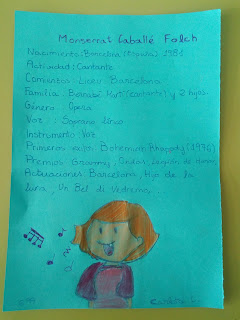 Monserrat Caballé Folch
Nacimiento: (Barcelona (España)
Actividad: Cantante
Comienzos: Liceu Barcelona
Familia: Bernabé (cantante) y 2 hijos
Género: Opera
Voz: Soprano
Instrumento: Voz
Primeros Bohemian Rhapsody
Premios Grammy, Legión de Honor
Actuaciones Barcelona, Hijo de la
luna, Un Bel di Vedremo...